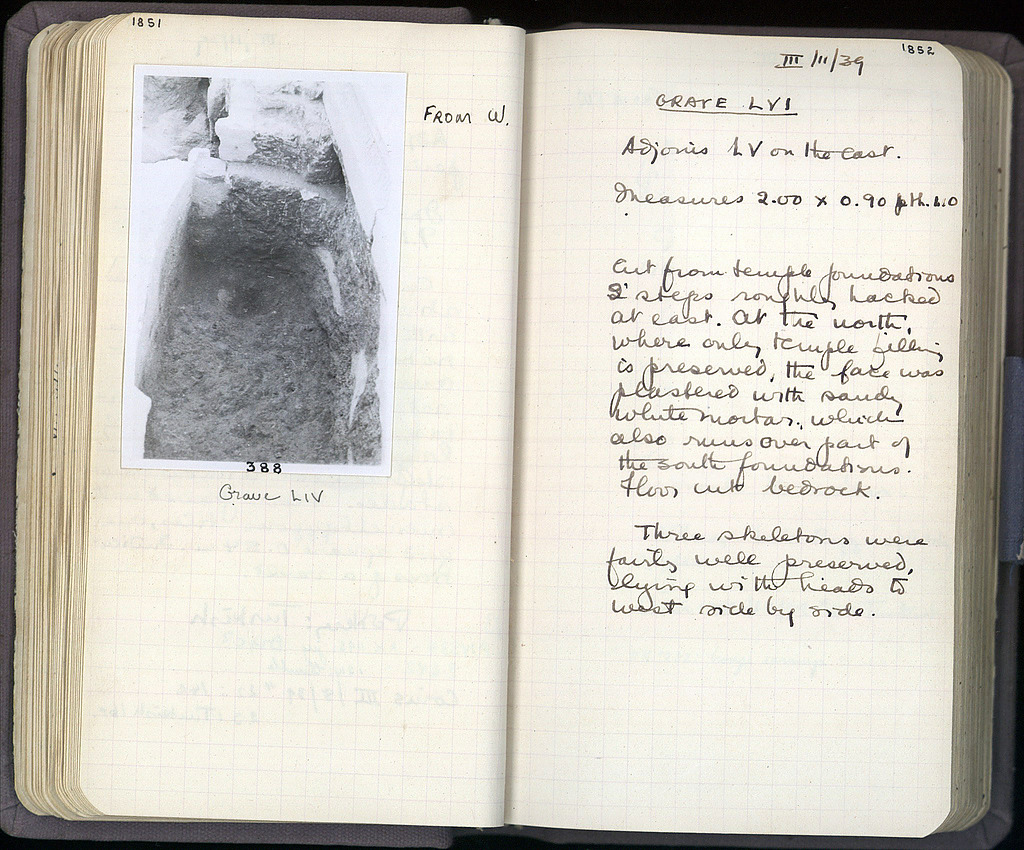 1851
FROM W.
388
Grave LIV
1852
III/11/39
GRAVE LVI
Adjoins LV on the east.
Measures 2.00 x 0.90 pth. 1.10
Cut from temple foundations
2 steps roughly hacked
at east. At the north,
where only temple filling
is preserved, the face was
plastered with sandy
white mortar, which
also runs over part of
the south foundations.
Floor cut bedrock.
Three skeletons were
fairly well preserved,
lying with heads to
west side by side.